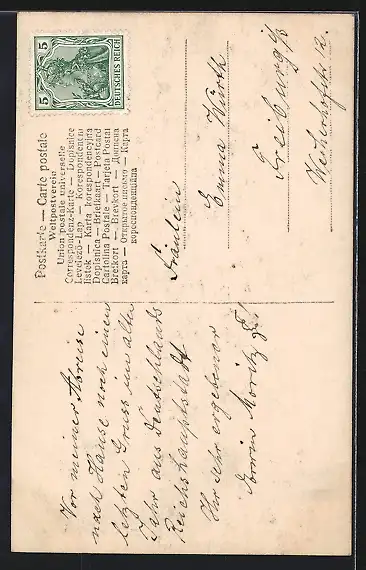 Postkarte — Carte postale
Weltpostverein
Union postale universelle
Correspondenz-Karte — Dopisnice
Levelező-Lap — Korespondentní
lístek — Karta korespondencyjna
Dopisnica — Briefkaart — Postcard
Cartolina Postale — Tarjeta Postal
Bretkort — Brevkort — Дописна
карта — Открытое письмо — Карта
кореспонденційна
5 5
DEUTSCHES REICH
Fräulein
Emma Würth
Freiburg i/B
Weiherhofstr. 12.
Vor meiner Abreise
nach Hause noch einen
letzten Gruss im alten
Jahr aus Deutschlands
Reichshauptstadt
Ihr sehr ergebener
Moritz